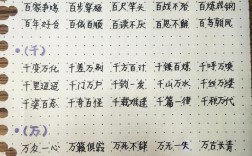 百家争鸣 百步穿杨 百尺竿头 百战不殆 百发百中
百年好合 百依百顺 百读不厌 百思不解 百鸟朝凤
(千)
千变万化 千差万别 千方百计 千锤百炼 千呼万唤
千里迢迢 千门万户 千钧一发 千山万水 千丝万缕
千姿百态 千奇百怪 千载难逢 千篇一律 千秋万代
(万)
万众一心 万籁俱寂 万死不辞 万无一失 万古长青